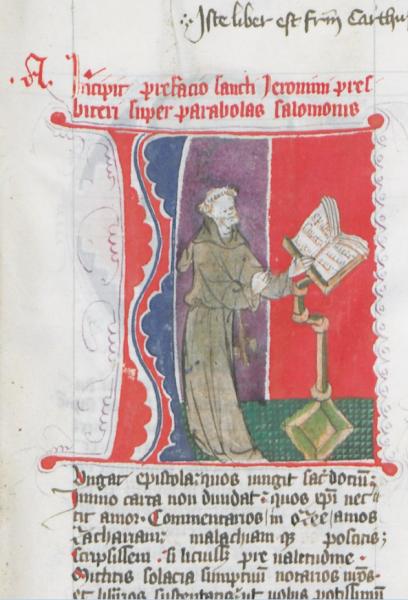 Iste liber est frm Carthu
.A. Incipit prefacio sancti Jeronimi pres
biteri super parabolas salomonis
Iungat epistola quos iungit sacerdotium
immo carta non diuidat quos xpi nec
tit amor. Commentarios in osee amos
zachariam malachiam qz poscitis
scripsissem. si licuisset pre ualetudine.
Mittitis solacia sumptuum notarios nros
et libros sustentatis ut uobis potissimum